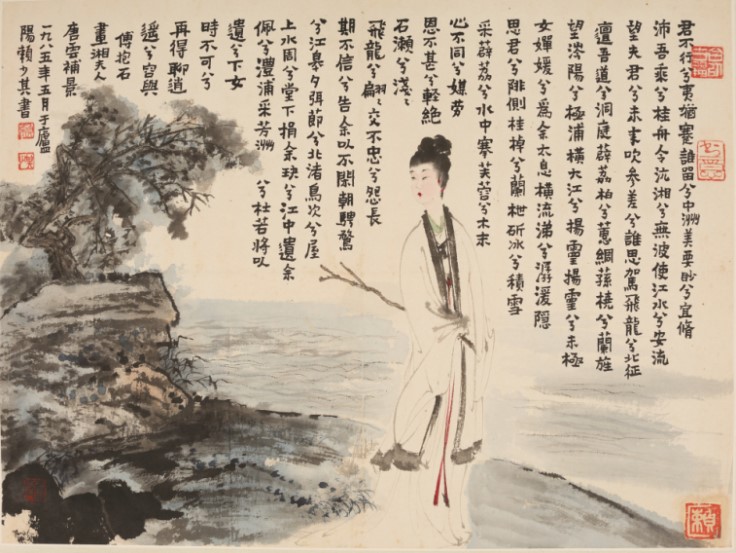 君不行兮夷猶蹇誰留兮中洲美要眇兮宜脩
沛吾乘兮桂舟令沅湘兮無波使江水兮安流
望夫君兮未來吹參差兮誰思駕飛龍兮北征
邅吾道兮洞庭薜荔柏兮蕙綢蓀橈兮蘭旌
望涔陽兮極浦橫大江兮揚靈揚靈兮未極
女嬋媛兮為余太息橫流涕兮潺湲隱
思君兮陫側桂棹兮蘭枻斫冰兮積雪
采薜荔兮水中搴芙蓉兮木末
心不同兮媒勞
恩不甚兮輕絕
石瀨兮淺〻
飛龍兮翩〻交不忠兮怨長
期不信兮告余以不閑朝騁騖
兮江皋夕弭節兮北渚鳥次兮屋
上水周兮堂下捐余玦兮江中遺余
佩兮澧浦采芳洲兮杜若將以
遺兮下女
時不可兮
再得聊逍
遙兮容與
傅抱石
畫湘夫人
唐雲補景
一九八五年五月于廬
陽賴少其書
賴